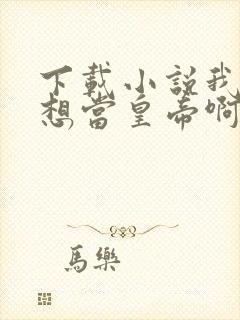 下載小説我
想當皇帝啊
馬樂